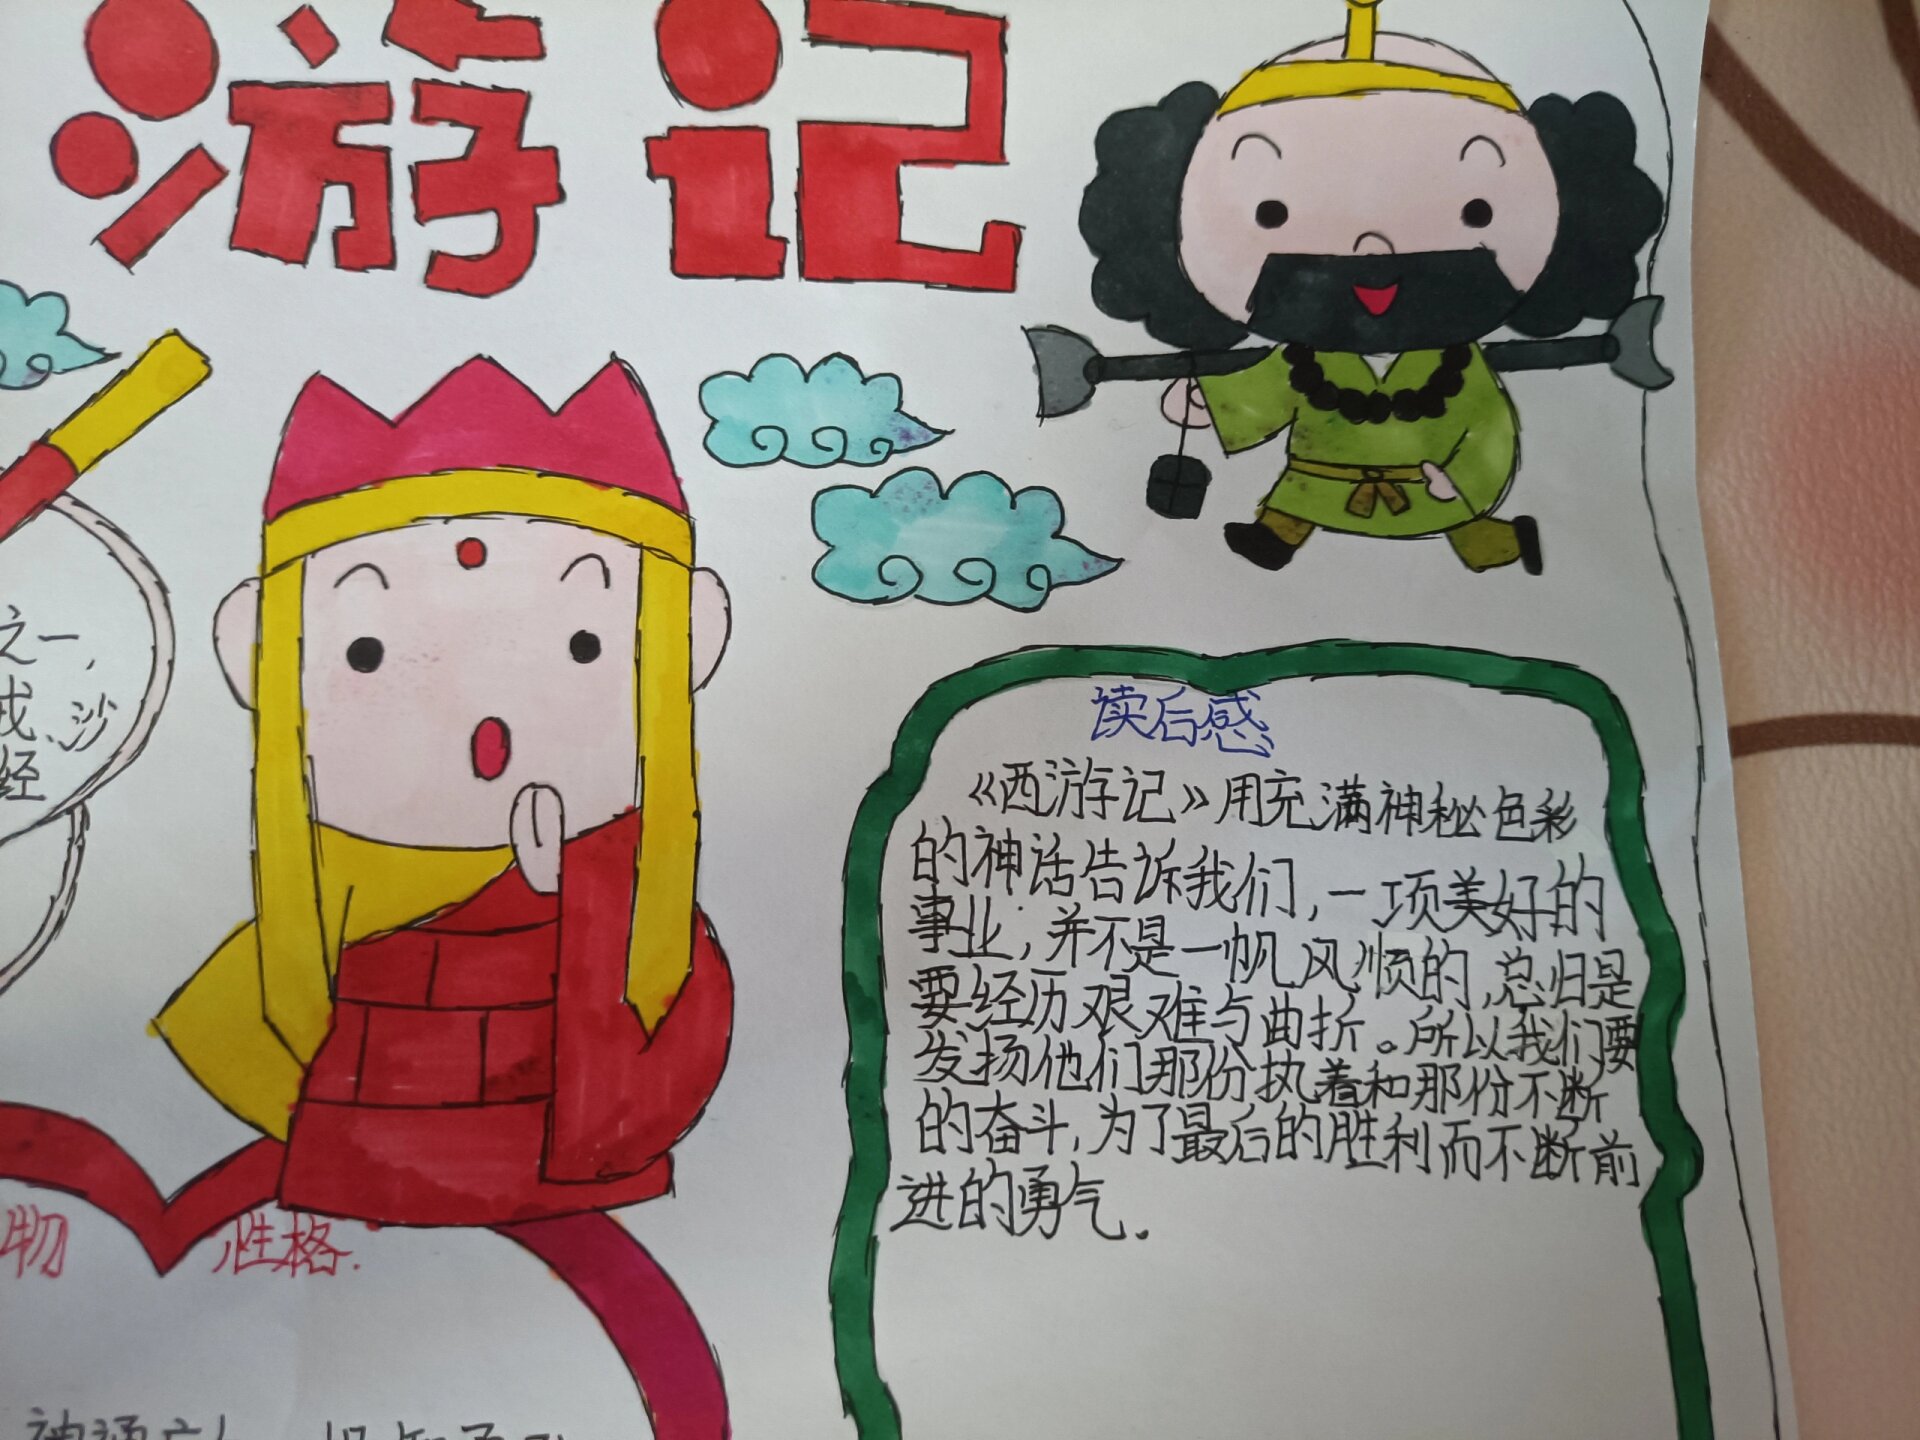 游记
之一,
戒、沙
经
读后感
《西游记》用充满神秘色彩
的神话告诉我们,一项美好的
事业,并不是一帆风顺的,总归是
要经历艰难与曲折。所以我们要
发扬他们那份执着和那份不断
的奋斗,为了最后的胜利而不断前
进的勇气.
物 性格.
神通广